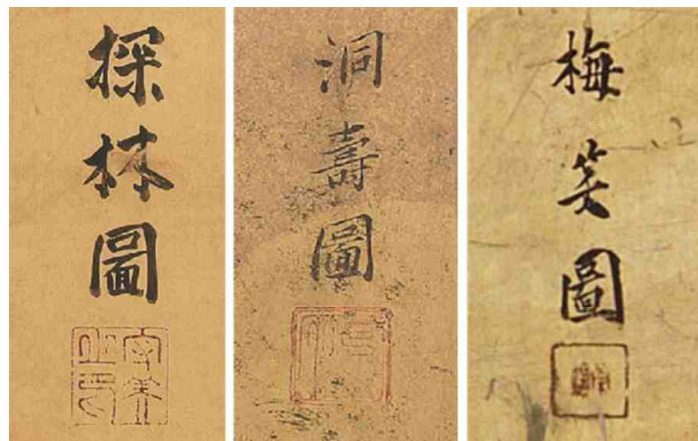 探林圖
洞壽圖
梅笑圖